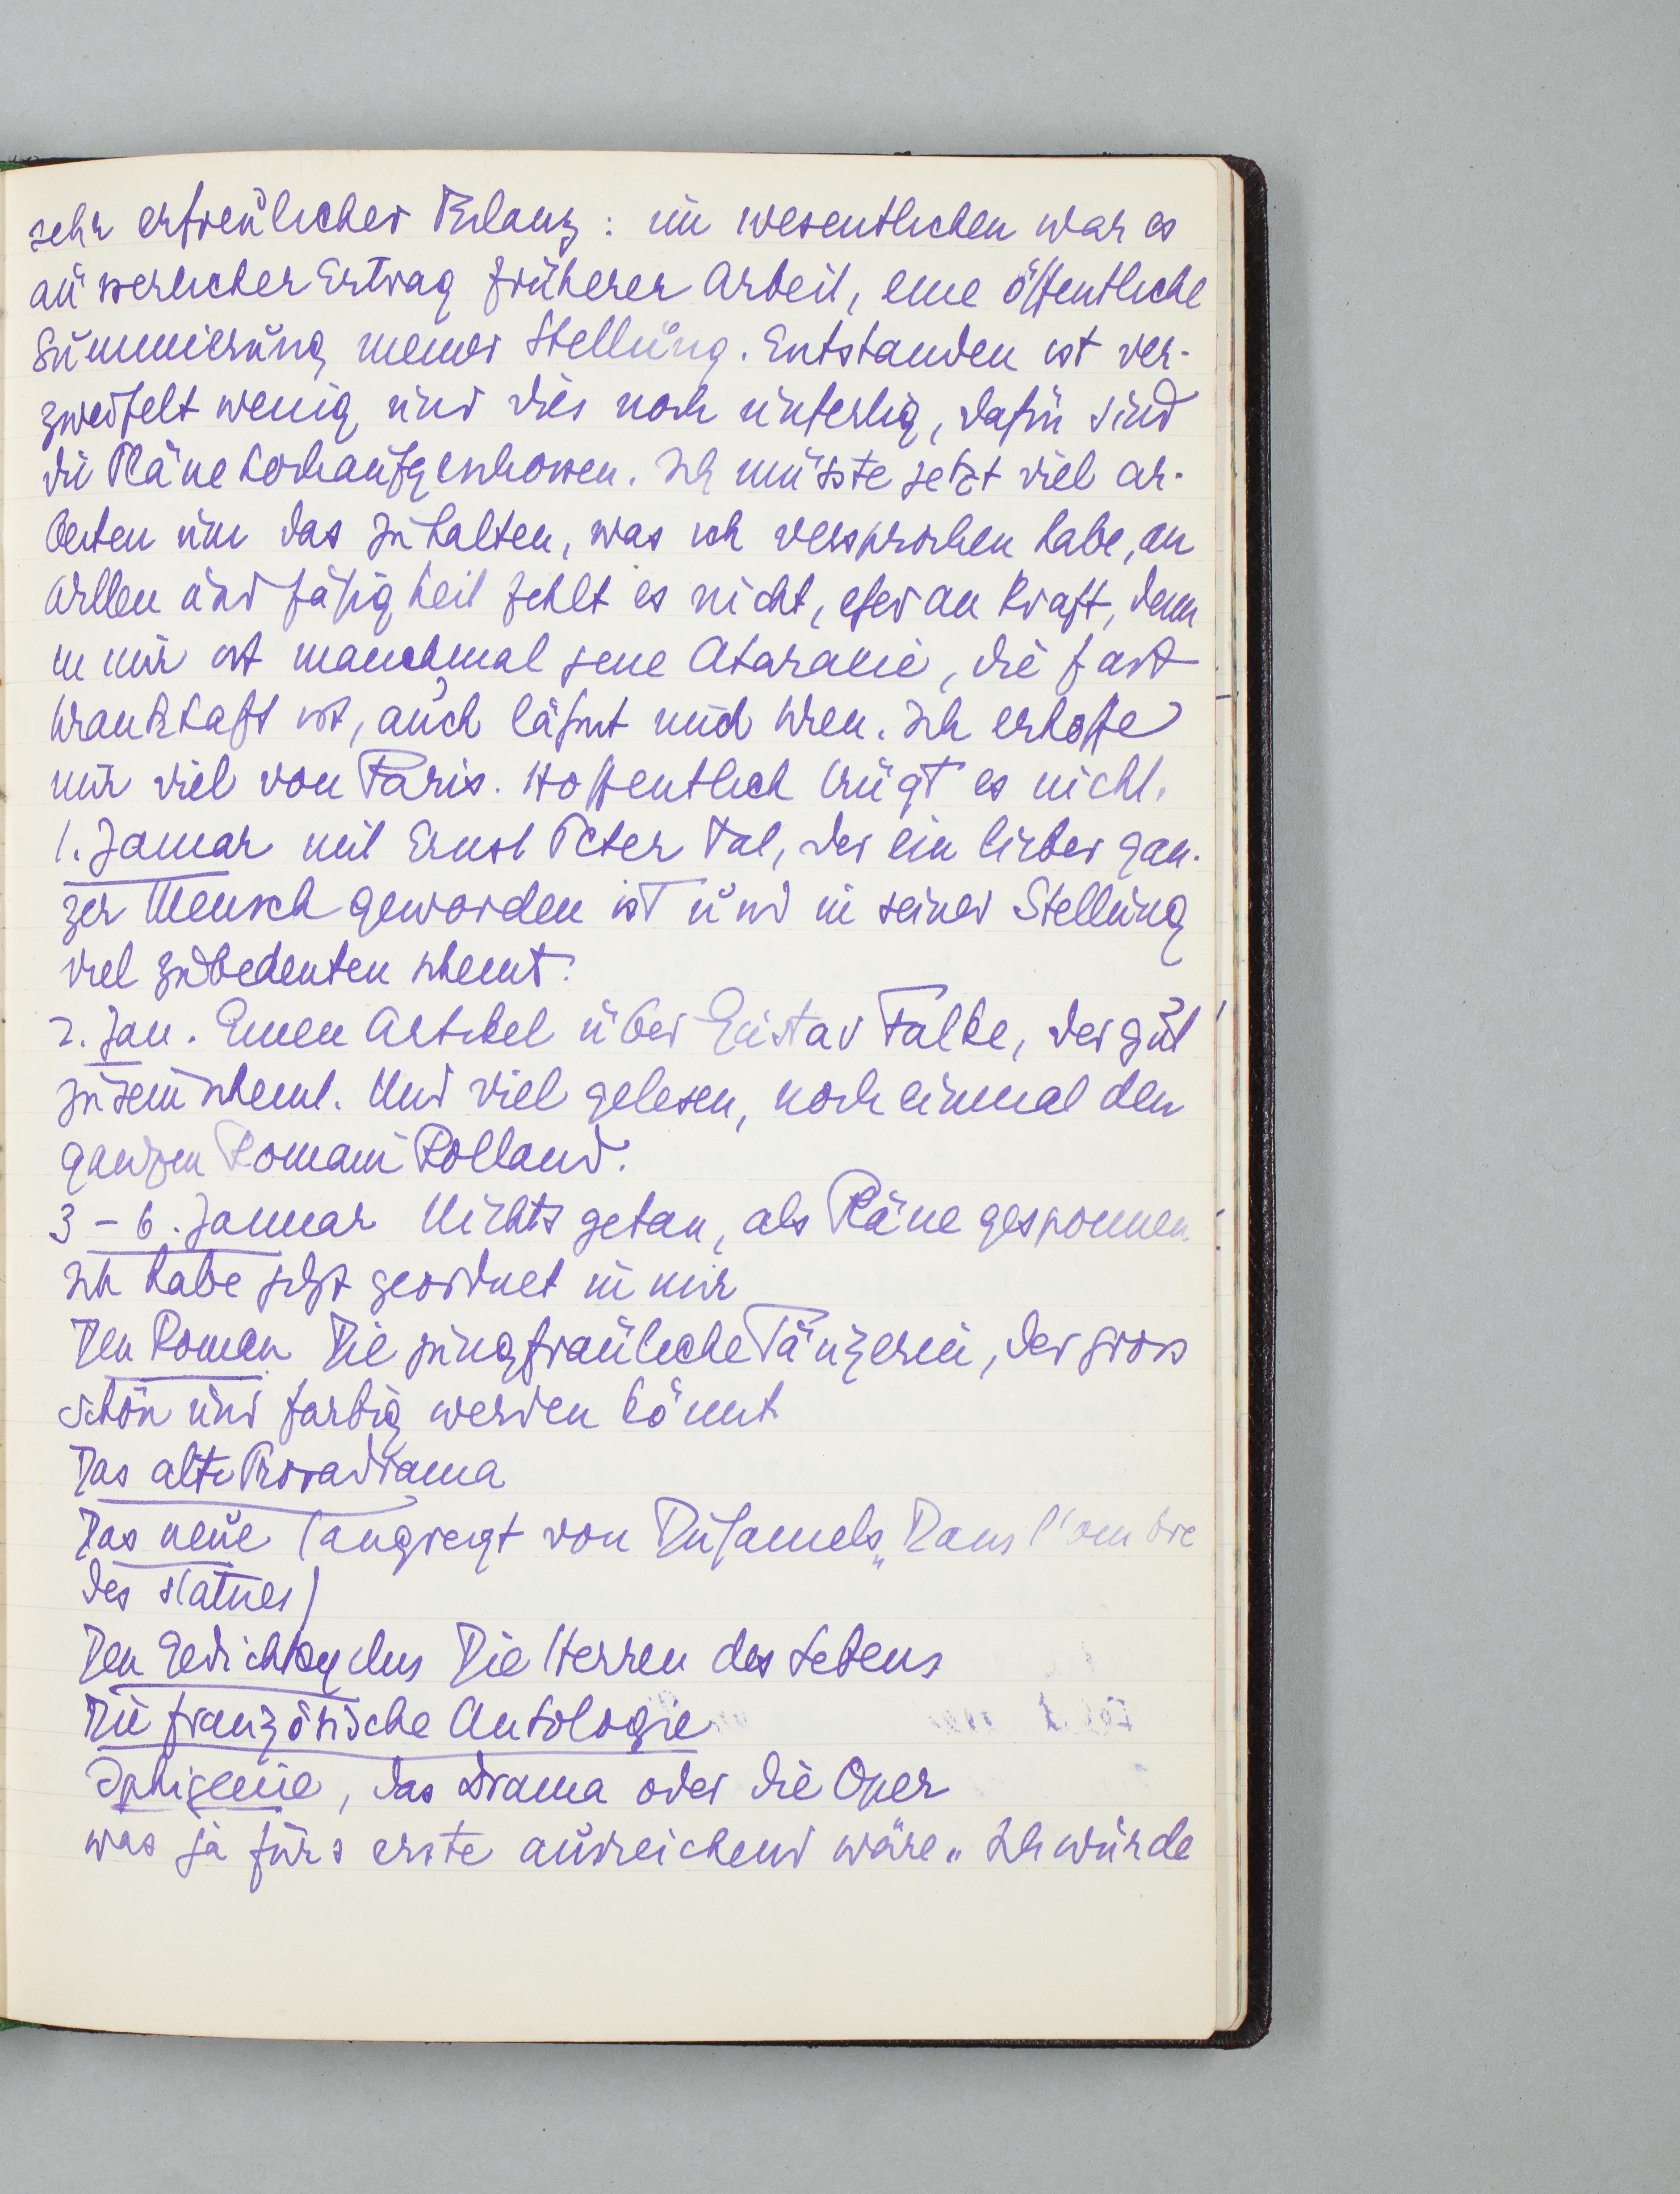 sehr erfreulicher Bilanz: im wesentlichen war es
äusserlicher Ertrag früherer Arbeit, eine öffentliche
Summierung meiner Stellung. Entstanden ist ver-
zweifelt wenig und dies noch unfertig, dafür sind
die Pläne hochaufgeschossen. Ich müsste jetzt viel ar-
beiten um das zu halten, was ich versprochen habe, an
Willen und Fähigkeit fehlt es nicht, eher an Kraft, denn
in mir ist manchmal jene Ataraxie, die fast
krankhaft ist, auch lähmt mich Wien. Ich erhoffe
mir viel von Paris. Hoffentlich trügt es nicht.
1. Januar mit Ernst Peter Tal, der ein lieber gan-
zer Mensch geworden ist und in seiner Stellung
viel zu bedeuten scheint.
2. Jan. Einen Artikel über Gustav Falke, der gut
zu sein scheint. Und viel gelesen, noch einmal den
ganzen Romain Rolland.
3-6. Januar Nichts getan, als Pläne gesponnen.
Ich habe jetzt geordnet in mir
Den Roman Die jungfräuliche Tänzerin, der gross
schön und farbig werden könnt
Das alte Prosadrama
Das neue (angregt von Duhamels „Dans l'ombre
des statues)
Den Gedichtcyclus Die Herren des Lebens
Die französische Antologie
Iphigenie, das Drama oder die Oper
was ja fürs erste ausreichend wäre. Ich würde